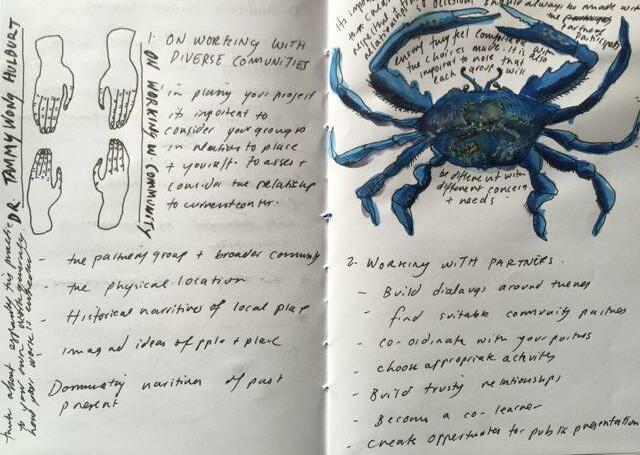 DR. TAMMY WONG HULBURT
ON WORKING W COMMUNITY
1. ON WORKING WITH
DIVERSE COMMUNITIES
in plannng your project
its inportent to
consider your group
in relation to place
+ yourself. To assess
consider the relationship
to current
- the partnerg group + broader community
- the physical location
- Historical narritives of local place
- imagined ideas of pple + place
Dominating narritives of past
present
to your own
hand
work is
should always be made with
the
Partners
ensuring they feel comfortable with
the choices made. It is also
important to note that
each group will
be different with
different concerns
+ needs.
2. WORKING WITH PARTNERS.
- Build dialougs around themes
- find suitable community partners
- co-ordinate with your partners
- choose appropriate activity
- Build trusting relationships
- Become a co-learner
- create opportunates for public presentation